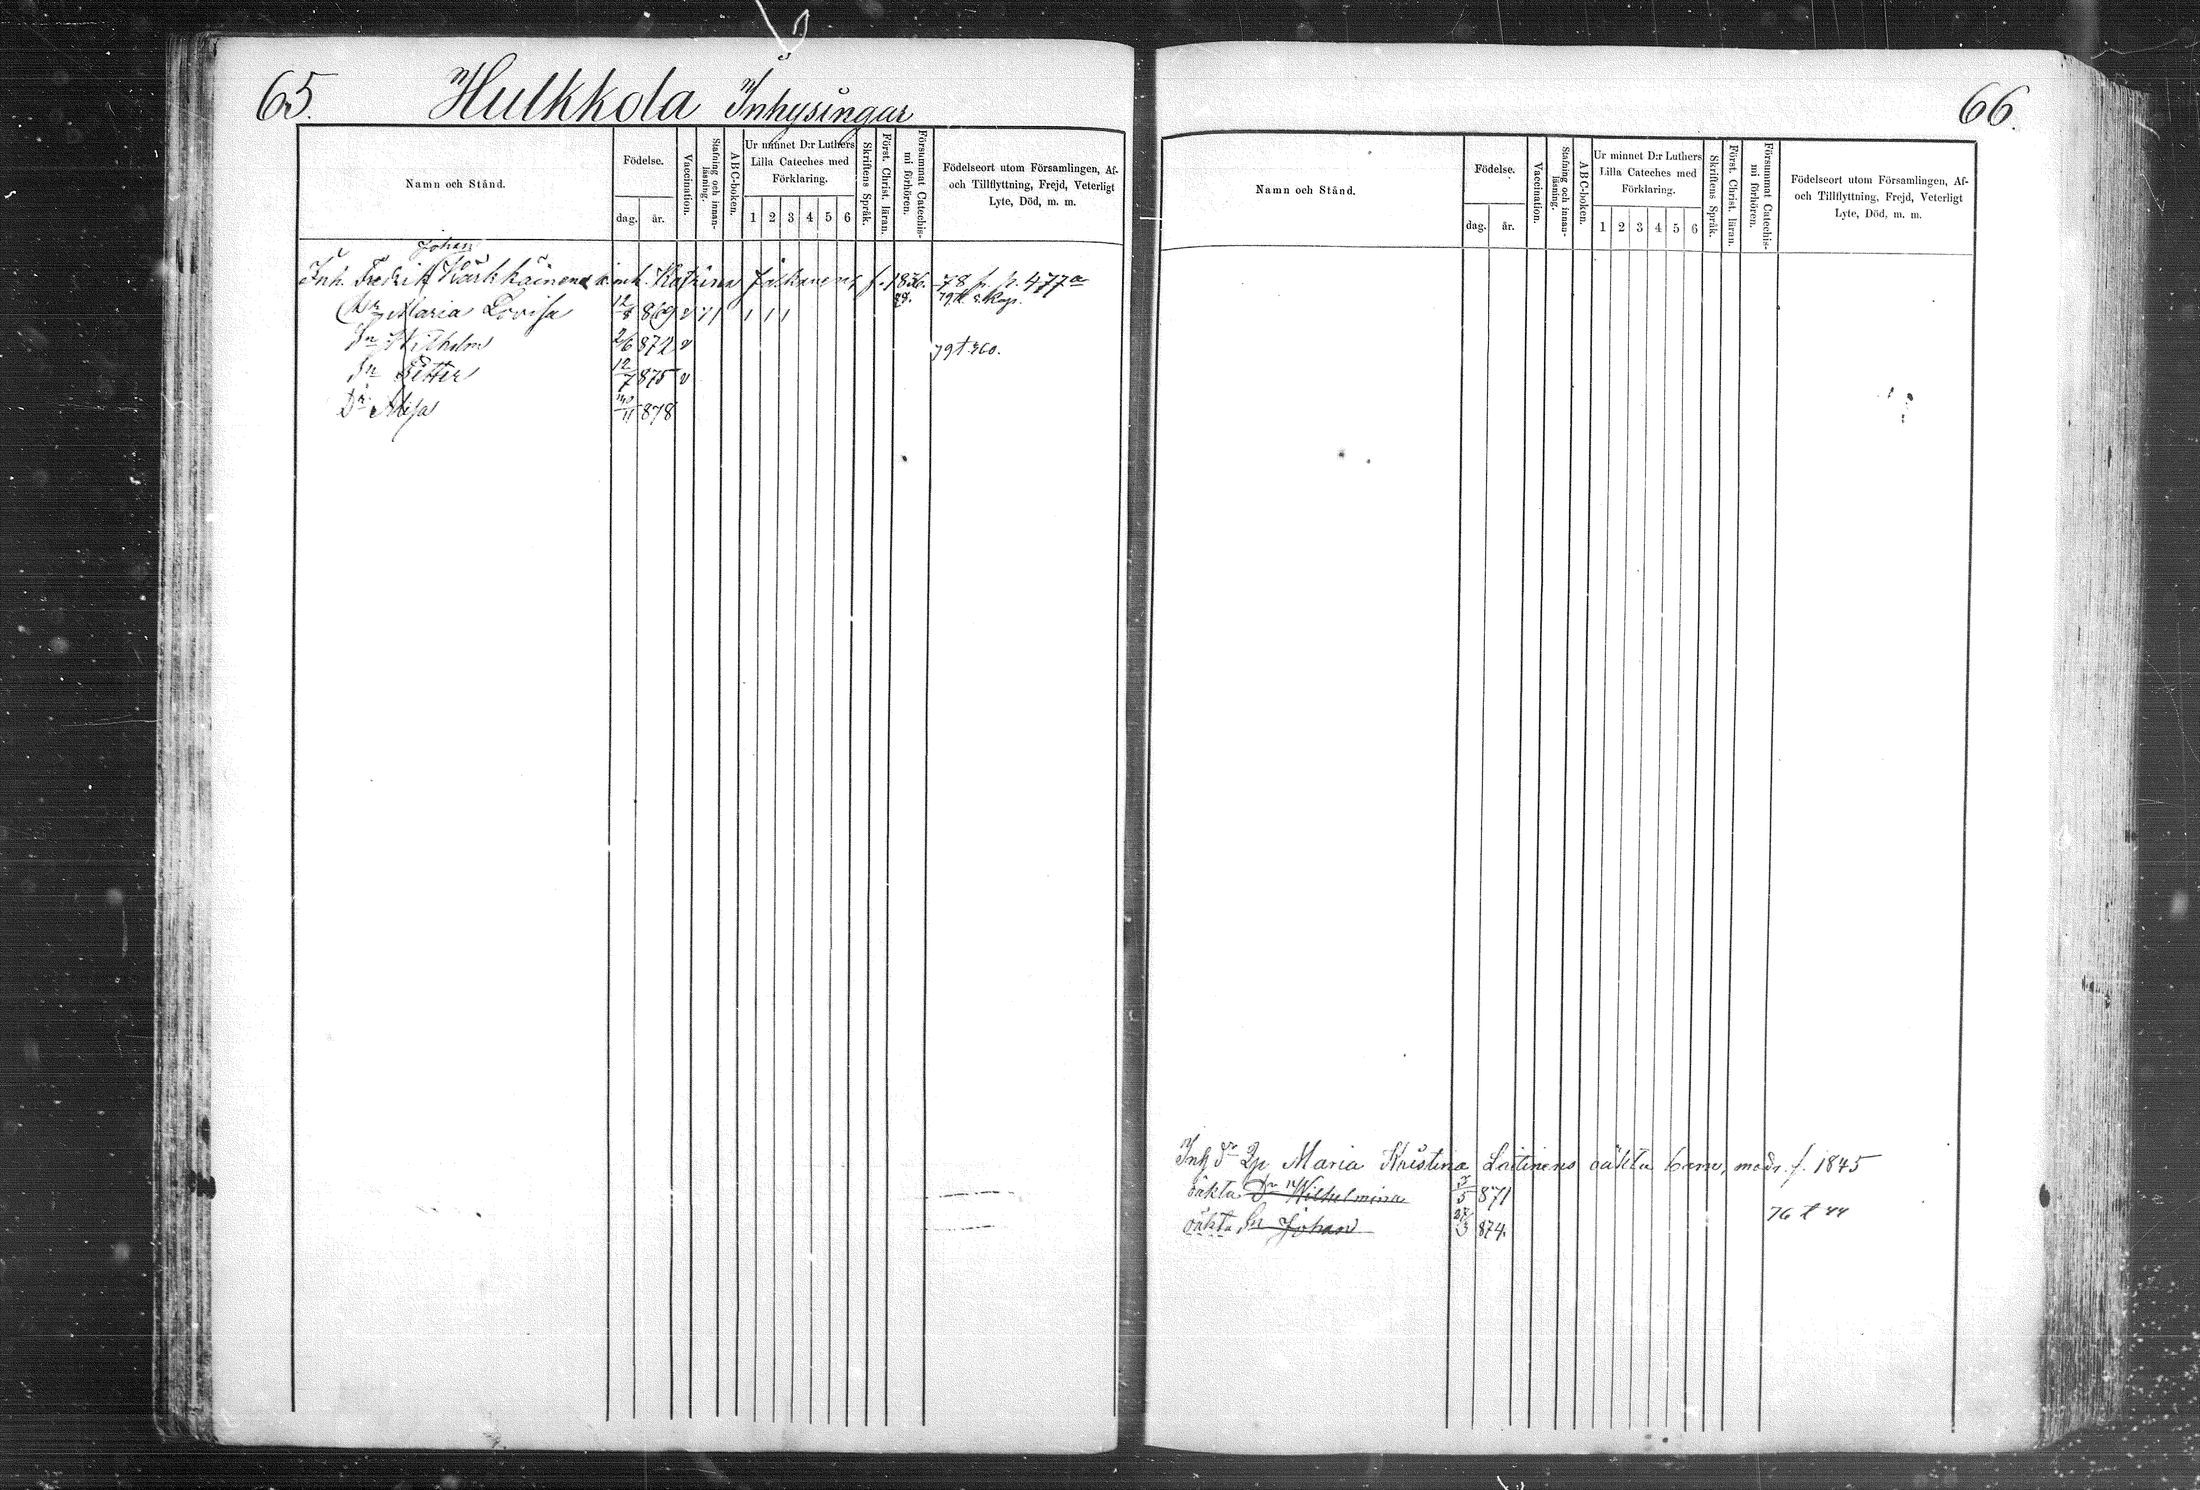 65.
Hulkkola Inhysingar
Namn och Stånd.
Födelse.
dag.
år.
Vaccination.
Stafning och innan-
läsning.
ABC-boken.
Ur minnet D:r Luthers
Lilla Cateches med
Förklaring.
1 2 3 4 5 6
Skriftens Språk.
Först. Christ. läran.
Försummat Catechis-
mi förhören.
Födelseort utom Församlingen, Af-
och Tillflyttning, Frejd, Veterligt
Lyte, Död, m. m.
Johan
Inh. Fredrik Kärkkäinens inh. Katrina f. 1836. 78 fr. p. 477a
Dr Maria Lovisa 12/8 869 v
Sn Wilhelm 2/6 872 v 79 t. 360.
Sn Petter 12/7 875 v
Dr 30/11 878
66.
Namn och Stånd.
Födelse.
dag.
år.
Vaccination.
Stafning och innan-
läsning.
ABC-boken.
Ur minnet D:r Luthers
Lilla Cateches med
Förklaring.
1 2 3 4 5 6
Skriftens Språk.
Först. Christ. läran.
Försummat Catechis-
mi förhören.
Födelseort utom Församlingen, Af-
och Tillflyttning, Frejd, Veterligt
Lyte, Död, m. m.
Inh dr Maria Kristina Laitinens oäkta barn, modr. f. 1845
oäkta Dr Wilhelmina 871
oäkta Sn Johan 27/3 874. 76 t 44